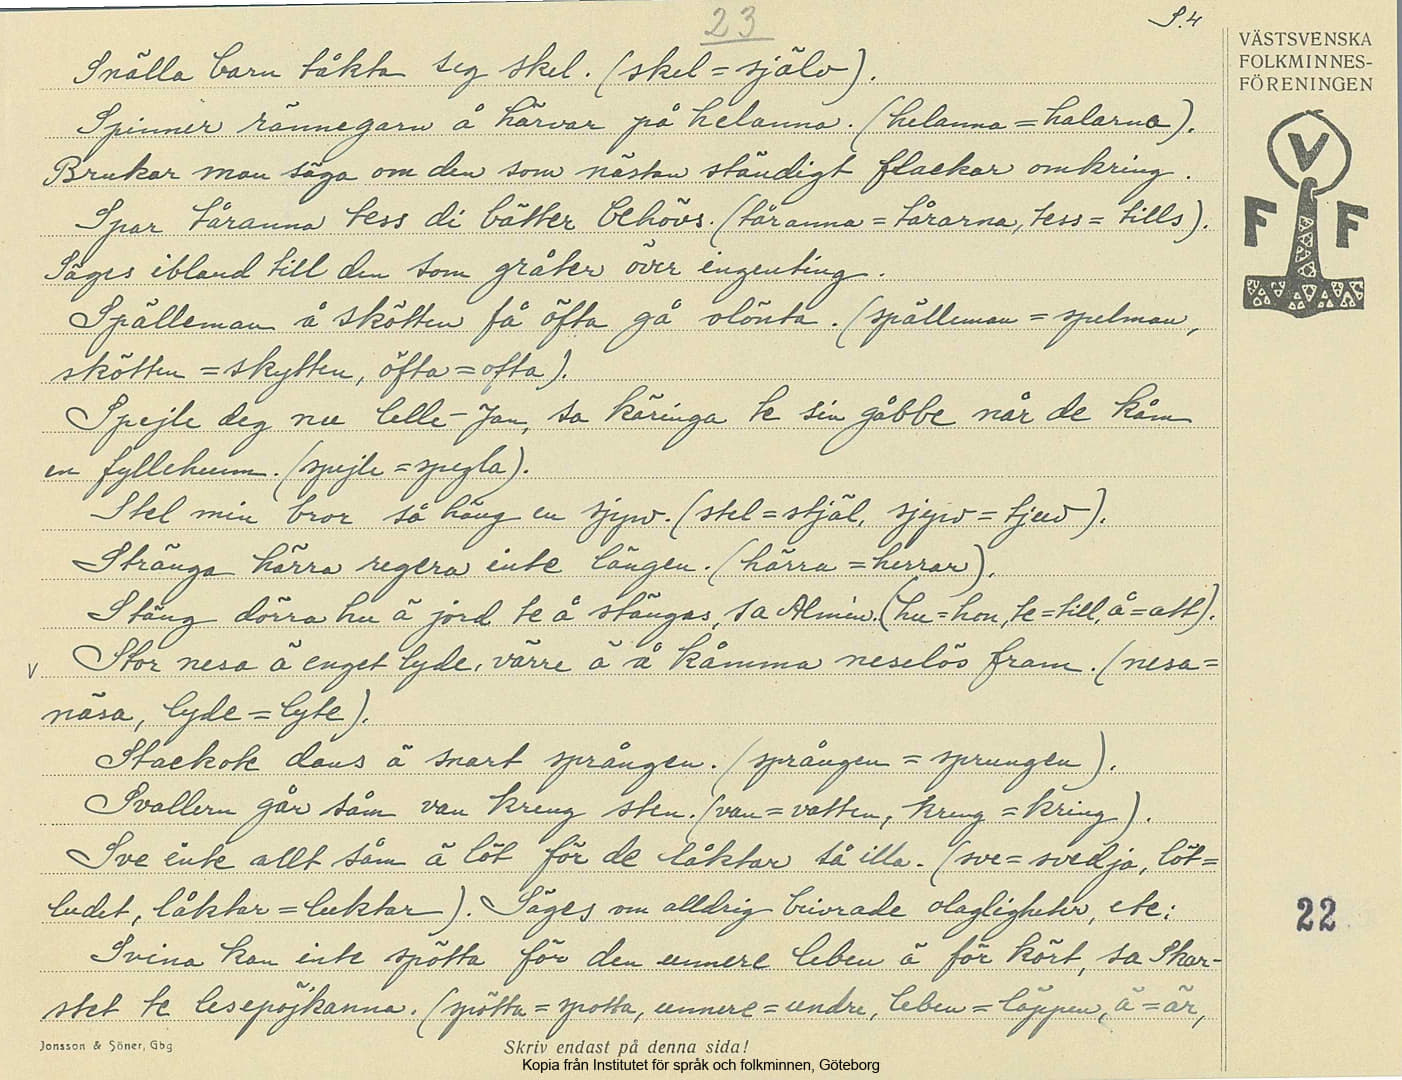 23
S. 4
Snälla barn tåkta seg skel. (skel = själv).
Spinner rännegarn å härvar på helanna. (helanna = halarna).
Brukar man säga om den som nästan ständigt flackar omkring.
Spar tåranna tess di bätter behövs. (tåranna = tårarna, tess = tills).
Säges ibland till den som gråter över ingenting.
Spälleman å skötten få öfta gå olönta. (spälleman = spelman,
skötten = skytten, öfta = ofta).
Spejle deg nu lelle-Jan, sa käringa te sin gåbbe når de kåm
en fyllehunn. (spejle = spegla).
Stel min bror så häng en sjyw. (stel = stjäl, sjyw = tjuv).
Stränga härra regera inte längen. (härra = herrar).
Stäng dörra hu ä jord te å stängas, sa Almin. (hu = hon, te = till, å = att).
V Stor nesa ä enget lyde, värre ä å kåmma neselös fram. (nesa =
näsa, lyde = lyte).
Stackok dans ä snart sprången. (sprången = sprungen).
Svallern går såm van kreng sten. (van = vatten, kreng = kring).
Sve inte allt såm ä löt för de låktar så illa. (sve = svedja, löt =
ludet, låktar = luktar). Säges om alldrig beivrade olagligheter, etc:
Svina kan inte spötta för den unnere leben ä för kört, sa Skar-
stet te lesepöjkanna. (spötta = spotta, unnere = undre, leben = läppen, ä = är,
VÄSTSVENSKA
FOLKMINNES-
FÖRENINGEN
V
F F
22
Jonsson & Söner, Gbg
Skriv endast på denna sida!
Kopia från Institutet för språk och folkminnen, Göteborg